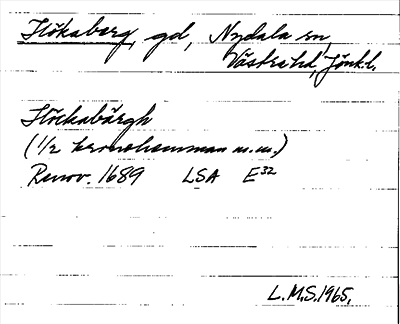 Hökaberg, gd, Nydala sn,
Västra hd, Jönk.l.
Höckabärgh
(1/2 kronohemman m.m.)
Renov. 1689 LSA E32
L.M.S. 1965.